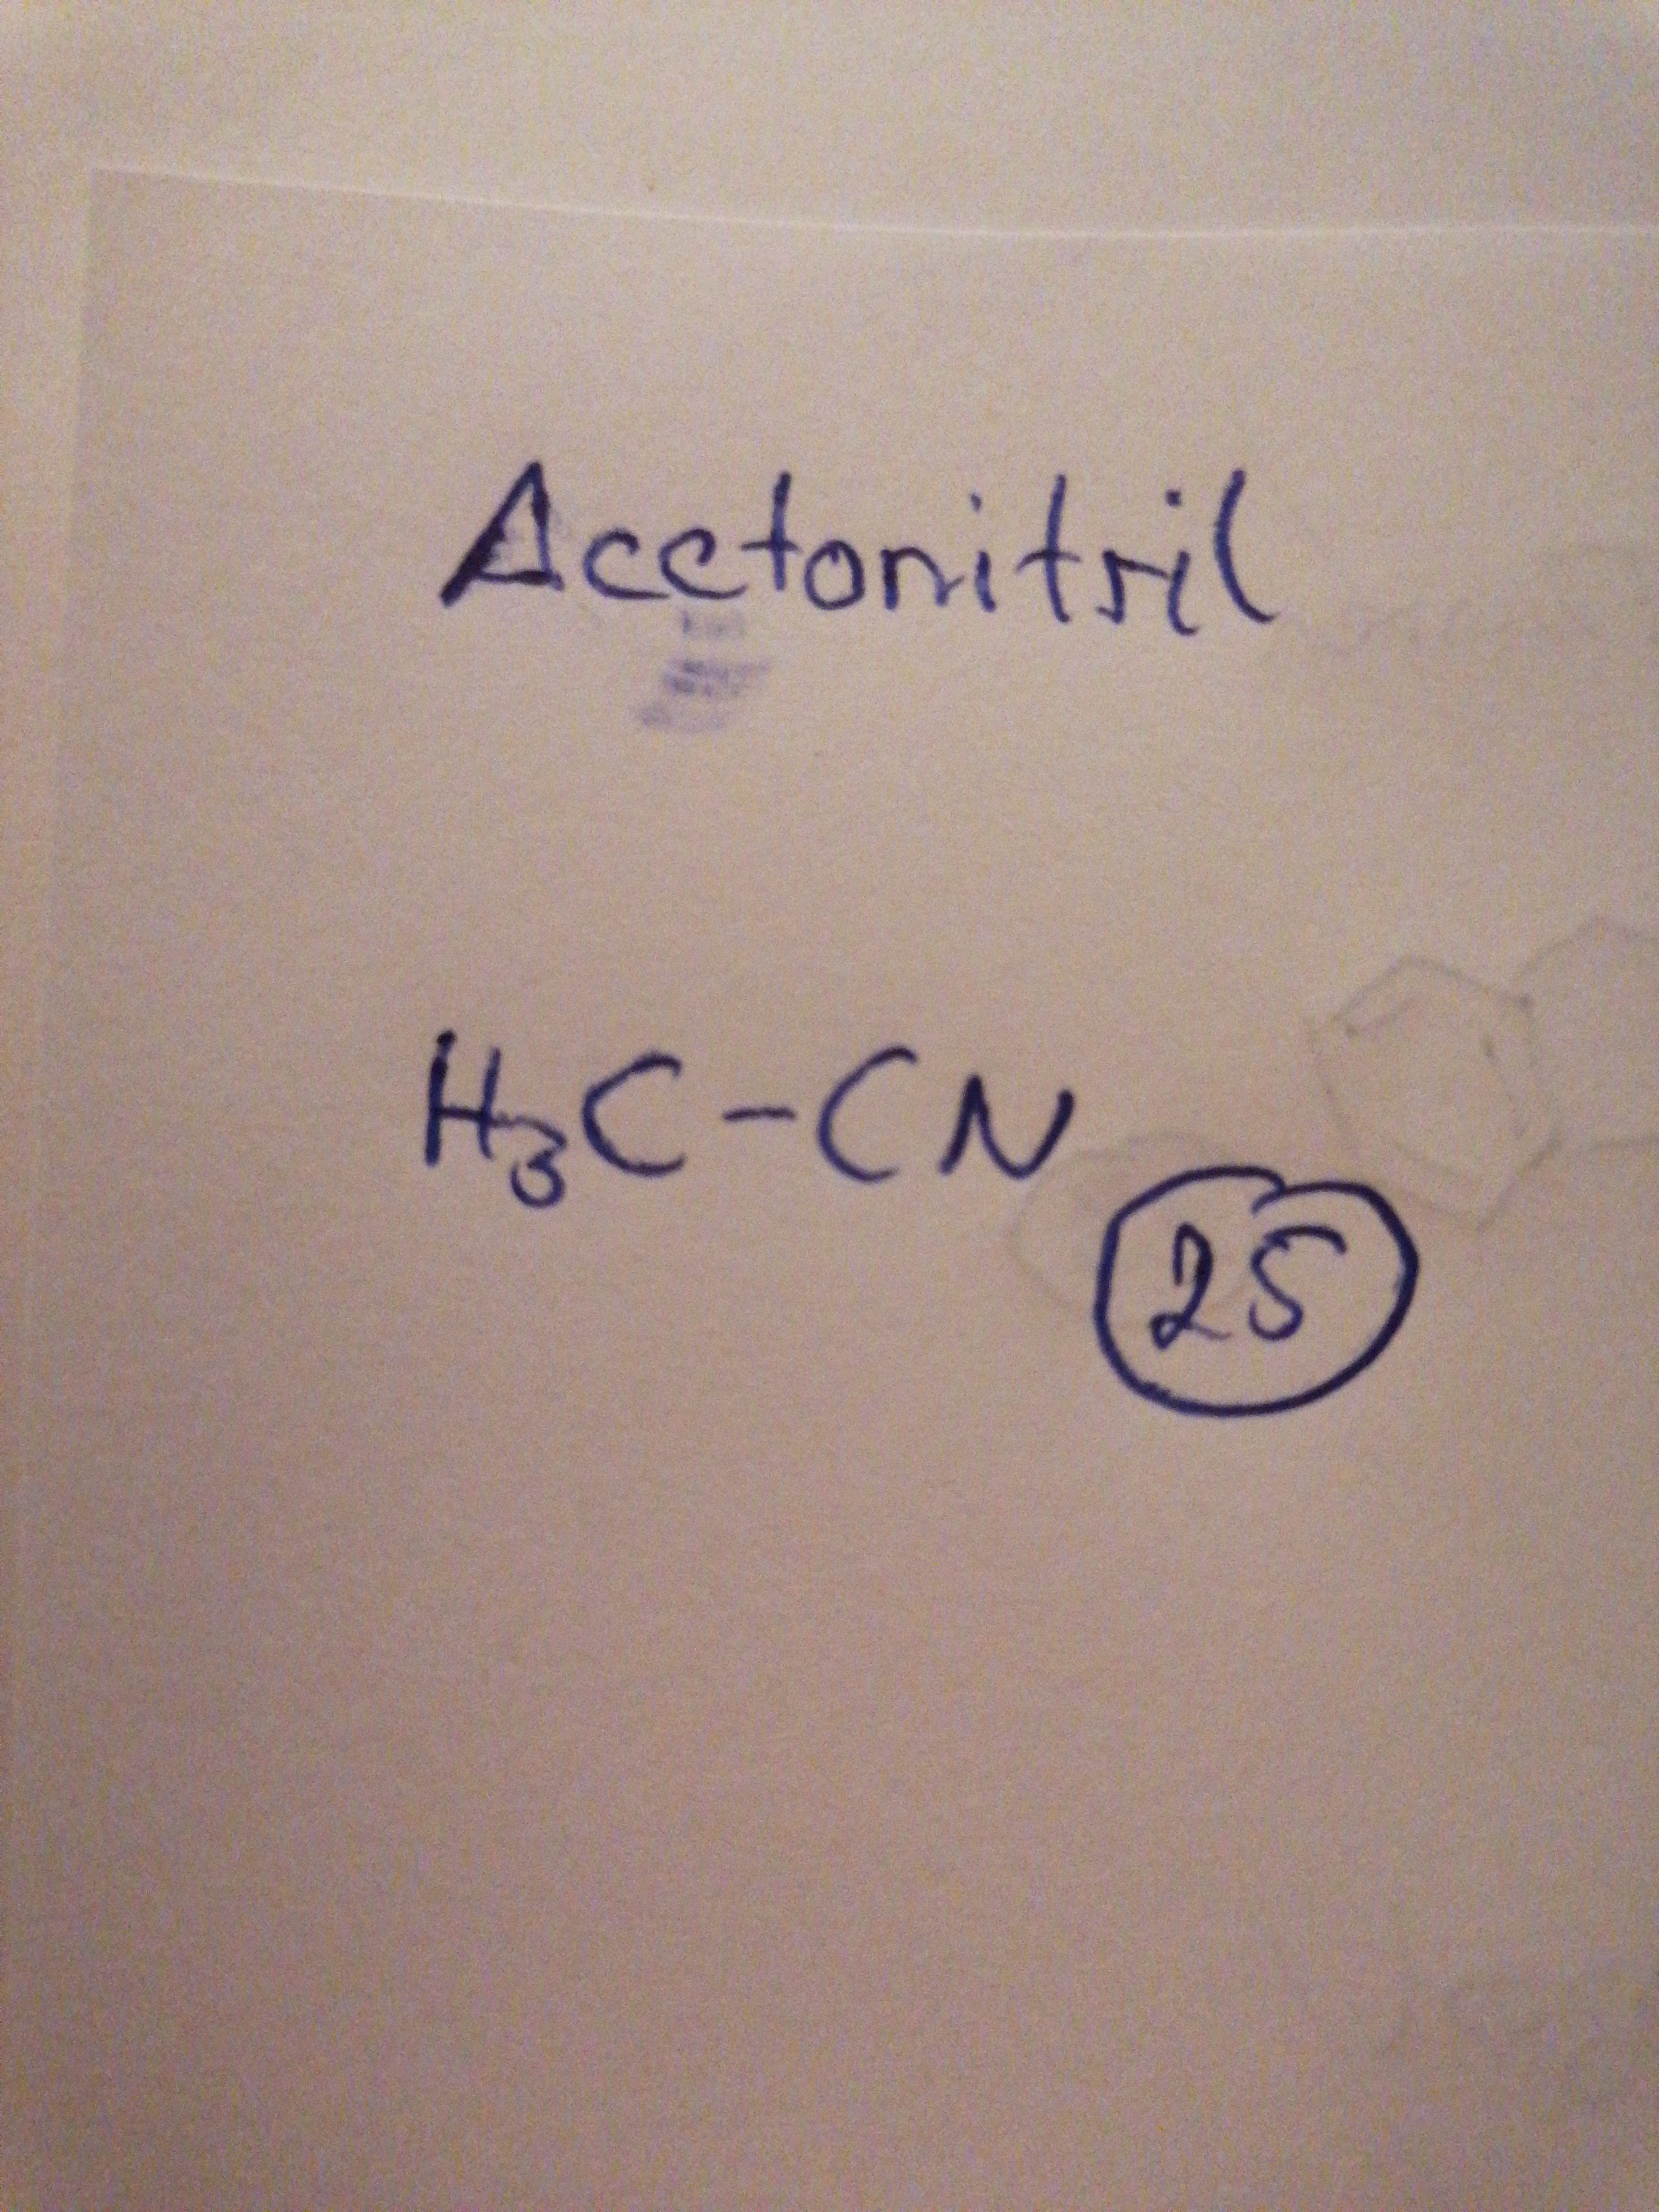 Acetonitril
H₃C-CN
25